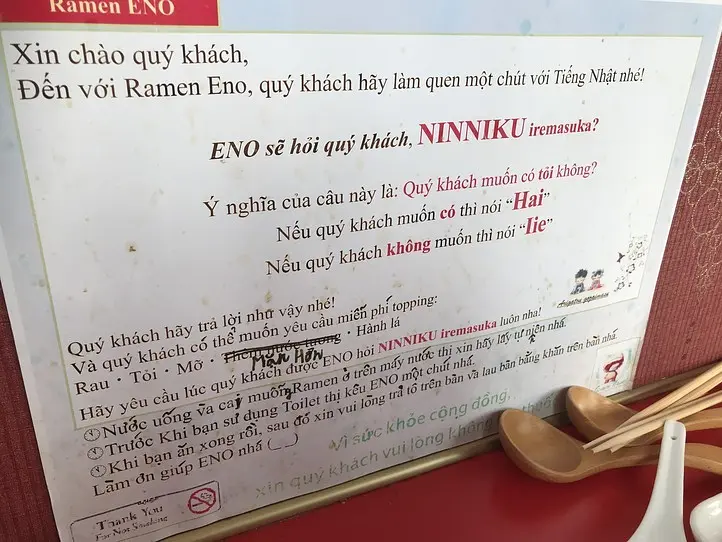 Ramen ENO
Xin chào quý khách,
Đến với Ramen Eno, quý khách hãy làm quen một chút với Tiếng Nhật nhé!
ENO sẽ hỏi quý khách, NINNIKU iremasuka?
Ý nghĩa của câu này là: Quý khách muốn có tỏi không?
Nếu quý khách muốn có thì nói “Hai”
Nếu quý khách không muốn thì nói “Iie”
Quý khách hãy trả lời như vậy nhé!
Và quý khách có thể muốn yêu cầu miễn phí topping:
Rau・Tỏi・Mỡ・Thêm nước tương・Hành lá
Mặn Hơn
Hãy yêu cầu lúc quý khách được ENO hỏi NINNIKU iremasuka luôn nha!
Nước uống và cay muỗng Ramen ở trên máy nước thì xin hãy lấy tự nhiên nhá.
Trước Khi bạn sử dụng Toilet thị kêu ENO một chút nhá.
Khi bạn ăn xong rồi, sau đó xin vui lòng trả tô trên bàn và lau bàn bằng khăn trên bàn nhá.
Làm ơn giúp ENO nhá (__)
Vì sức khỏe cộng đồng,
xin quý khách vui lòng không thuốc
Thank You
For Not Smoking